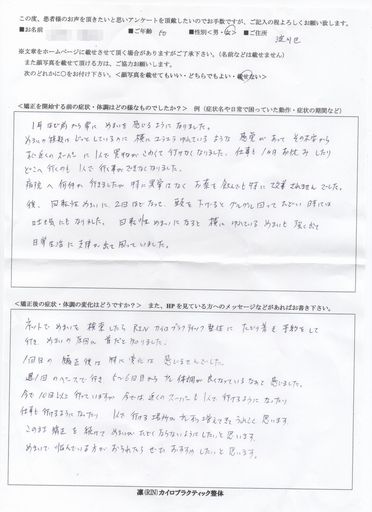 この度、患者様のお声を頂きたいと思いアンケートを頂戴したいのでお手数ですが、ご記入の程よろしくお願い致します。
■お名前 ■ご年齢 60 ■性別<男・女> ■ご住所 淀川区
※文章をホームページに載せさせて頂く場合がありますがご了承下さい。(名前などは載せません)
また顔写真を載せて頂ける方は、ご協力お願いします。
次のどれかに○をお付け下さい。<顔写真を載せてもいい・どちらでもよい・載せない>
<矯正を開始する前の症状・体調はどの様なものでしたか?> 例(症状名や日常で困っていた動作・症状の期間など)
1年ほど前から常に めまいを感じるようになりました。
めまいの種類は じっとしているのに 横に ユラユラ ゆれている ような 感覚が あって その为
近くの スーパーに 1人で 買物が こわくて 行けなくなりました。仕事も 1カ月 お休み したり
どこへ 行くのも 1人で 行く事が できなくなりました。
病院へ 何件か 行きましたが 特に異常はなく お薬を 飲んでも 特に 改善 されませんでした。
後、回転性めまいに、2回ほどなって、頭を 下げると グルグル 回って たおれ 時には
吐き気にもなりました。回転性めまいになると 横に ゆれている めまいも 強く出て
日常生活に 支障が出て 困っていました。
<矯正後の症状・体調の変化はどうですか?> また、HPを見ている方へのメッセージなどがあればお書き下さい。
ネットで めまいを 検索したら RINカイロプラクティック整体に たどり着き 予約をして
行き めまいの原因が 首だと 知りました。
1回目の 矯正後は 特に変化は 感じませんでした。
週1回の ペースで 行き 5〜6回目から 少し体調が 良くなっているなあと 感じました。
今で 10回以上 行っていますが 今では 近くの スーパーも 1人で 行けるようになったり
仕事も 行けるようになったり 1人で 行ける 場所が 少しずつ 増えてきて うれしく 思います。
このまま 矯正を 続けて めまいが なくなるようにしたいと 思います。
めまいで 悩んでいる方が おられたら ぜひ おすすめ したいと 思います。
凛(RIN)カイロプラクティック整体